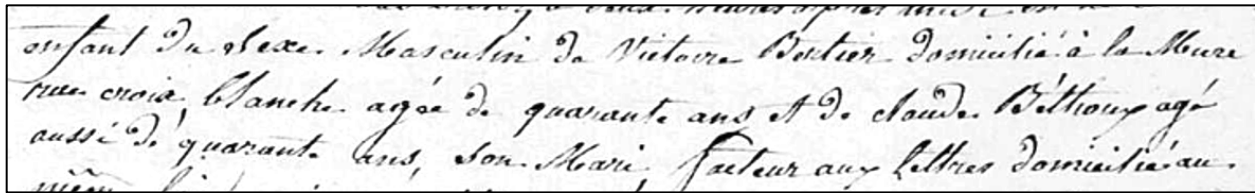 à deux heures après midi est né
enfant du Sexe Masculin de Victoire Bertier domiciliée à la Mure
rue croix blanche agée de quarante ans et de claude Béthoux agé
aussi de quarante ans, son Mari, facteur aux lettres domicilié au
même